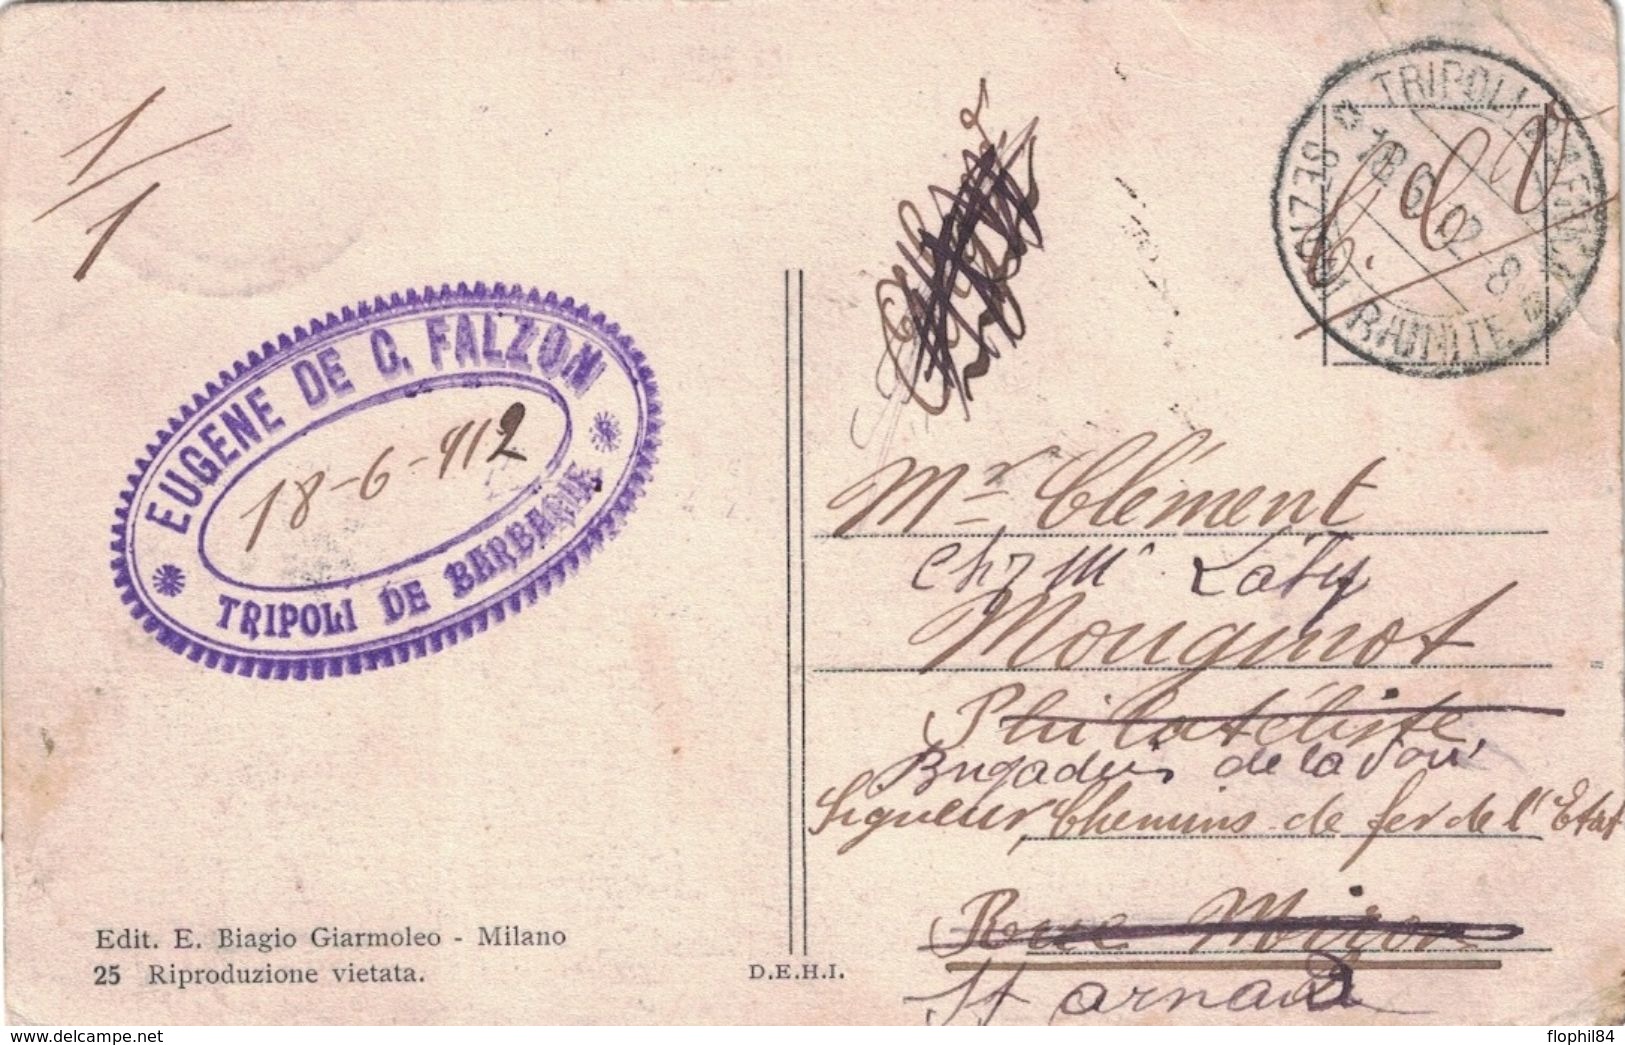 1/1
EUGENE DE C. FALZON
18-6-912
TRIPOLI DE BARBARIE
TRIPOLI D'AFRICA
18 6 12 8
SEZIONI RIUNITE
Mr Clément
chez Mr Laty
Mouginot
Philatéliste
Brigadier de la voie
Signeur, Chemins de fer de l'Etat
Rue Mizon
St arnaud
Edit. E. Biagio Giarmoleo - Milano
25 Riproduzione vietata.
D.E.H.I.
flophil84